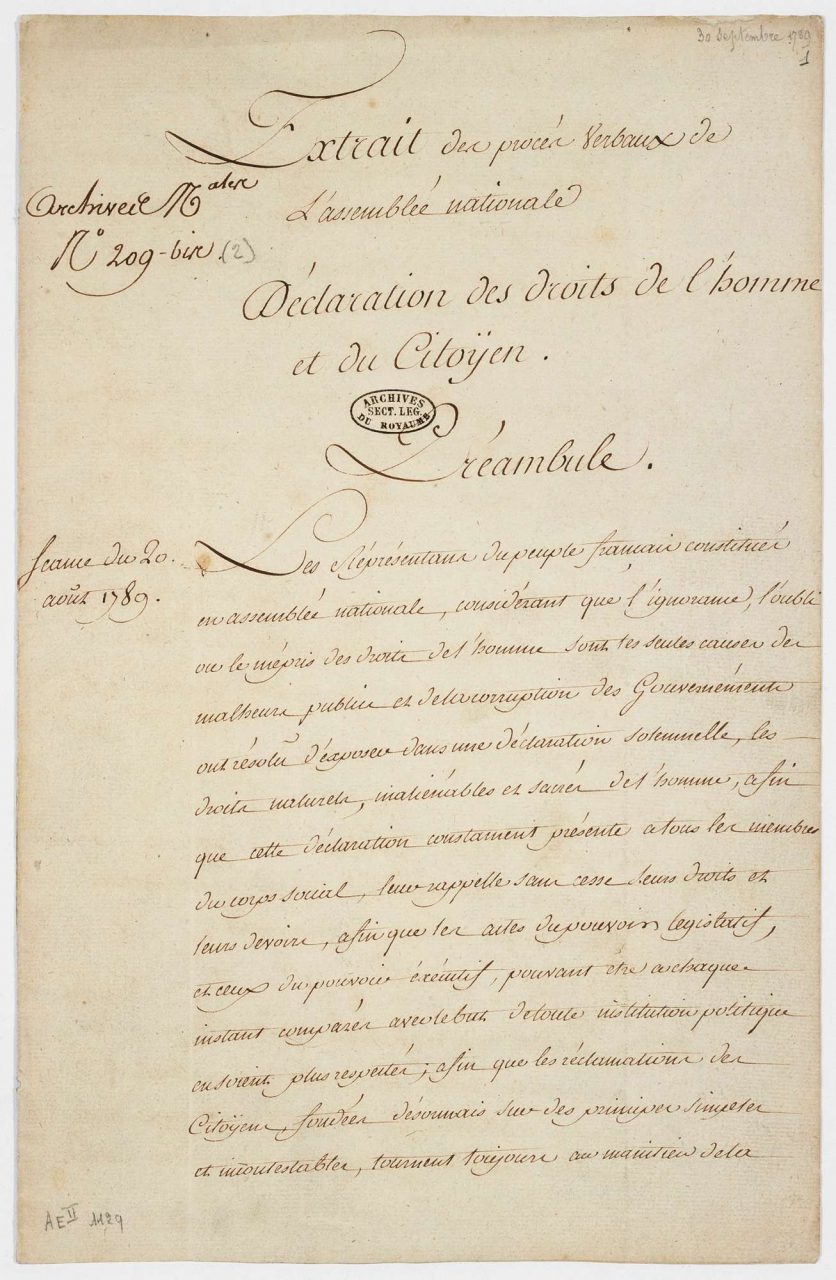 30 Septembre 1789
1
Extrait des procès Verbaux de
L'assemblée nationale
Archives Mates
N° 209-bis (2)
Déclaration des droits de l'homme
et du Citoÿen.
ARCHIVES
SECT. LEG.
DU ROYAUME
Préambule.
Seance du 20.
août 1789.
Les Réprésentans du peuple francais constitués
en assemblée nationale, considérant que l'ignorance, l'oubli
ou le mépris des droits de l'homme sont les seules causes des
malheurs publics et de la corruption des Gouvernéments
ont résolu d'éxposer dans une déclaration solemnelle, les
droits naturels, inaliénables et sacrés de l'homme, afin
que cette déclaration constament présente a tous les membres
du corps social, leur rappelle sans cesse leurs droits et
leurs devoirs, afin que les actes du pouvoir legislatif,
et ceux du pouvoir éxécutif, pouvant etre a chaque
instant comparés avec le but de toute institution politique
en soient plus respectés; afin que les réclamations des
Citoÿens, fondées désormais sur des principes simples
et incontestables, tournent toujours au maintien de la
AE II 1129